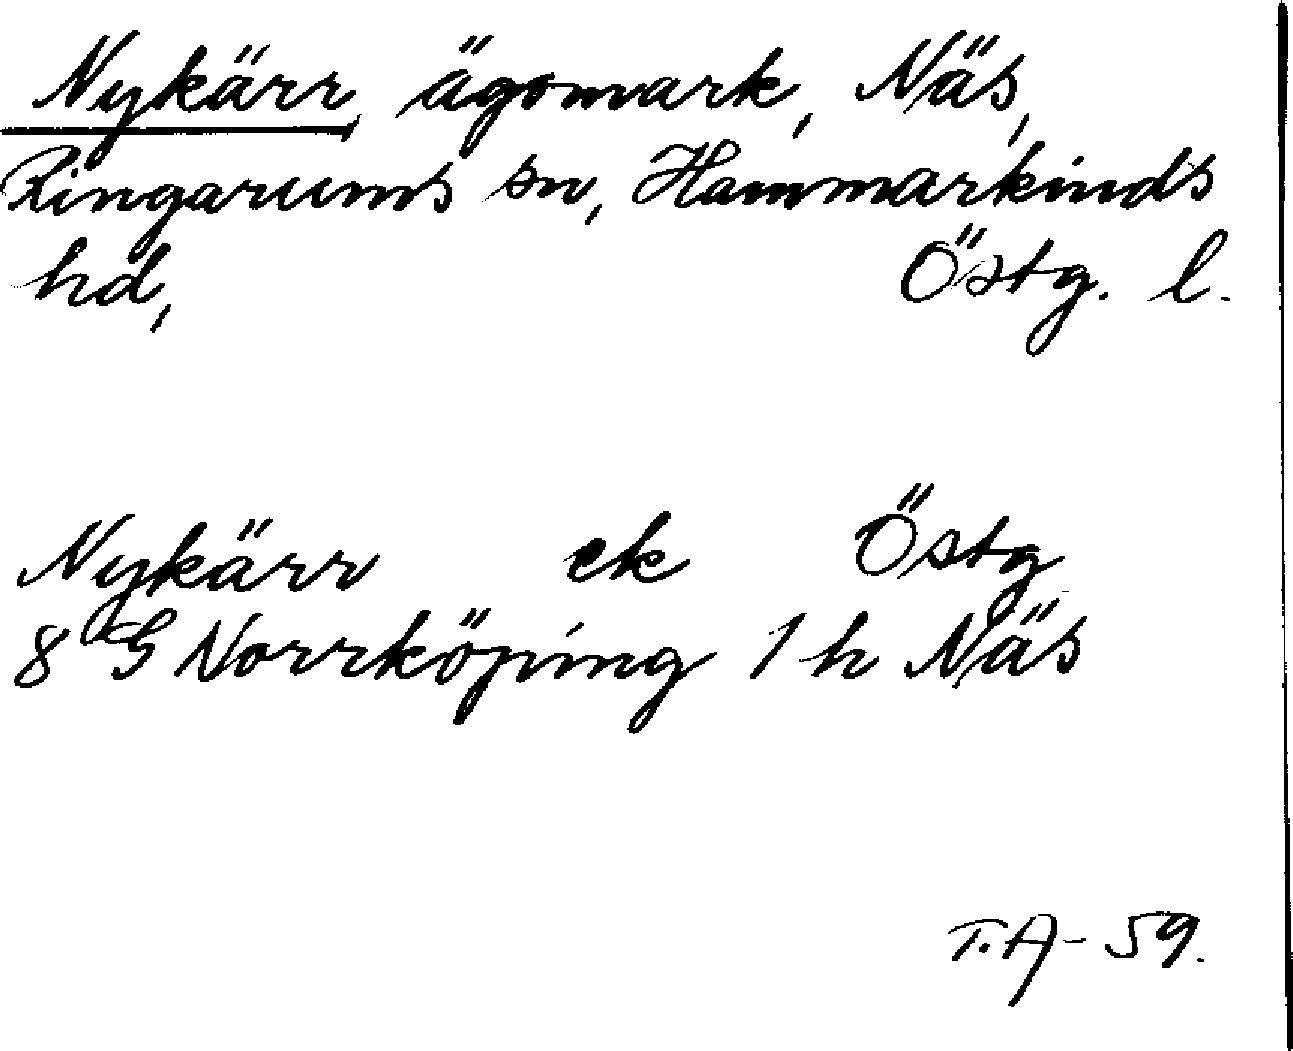 Nykärr, ägomark, Näs,
Ringarums sn, Hammarkinds
hd, Östg. l.
Nykärr ek Östg
8 G Norrköping 1 h Näs
T.A-59.